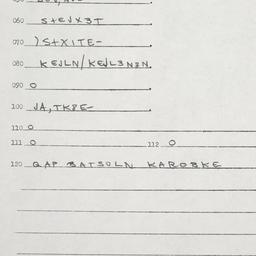 060 S+EJX3T
070 )S+XITE-
080 KEJLN/KEJL3N2N.
090 O
100 JA,TK8E-
110 O
111 O 112 O
120 QAP BATSOLN KAROBKE